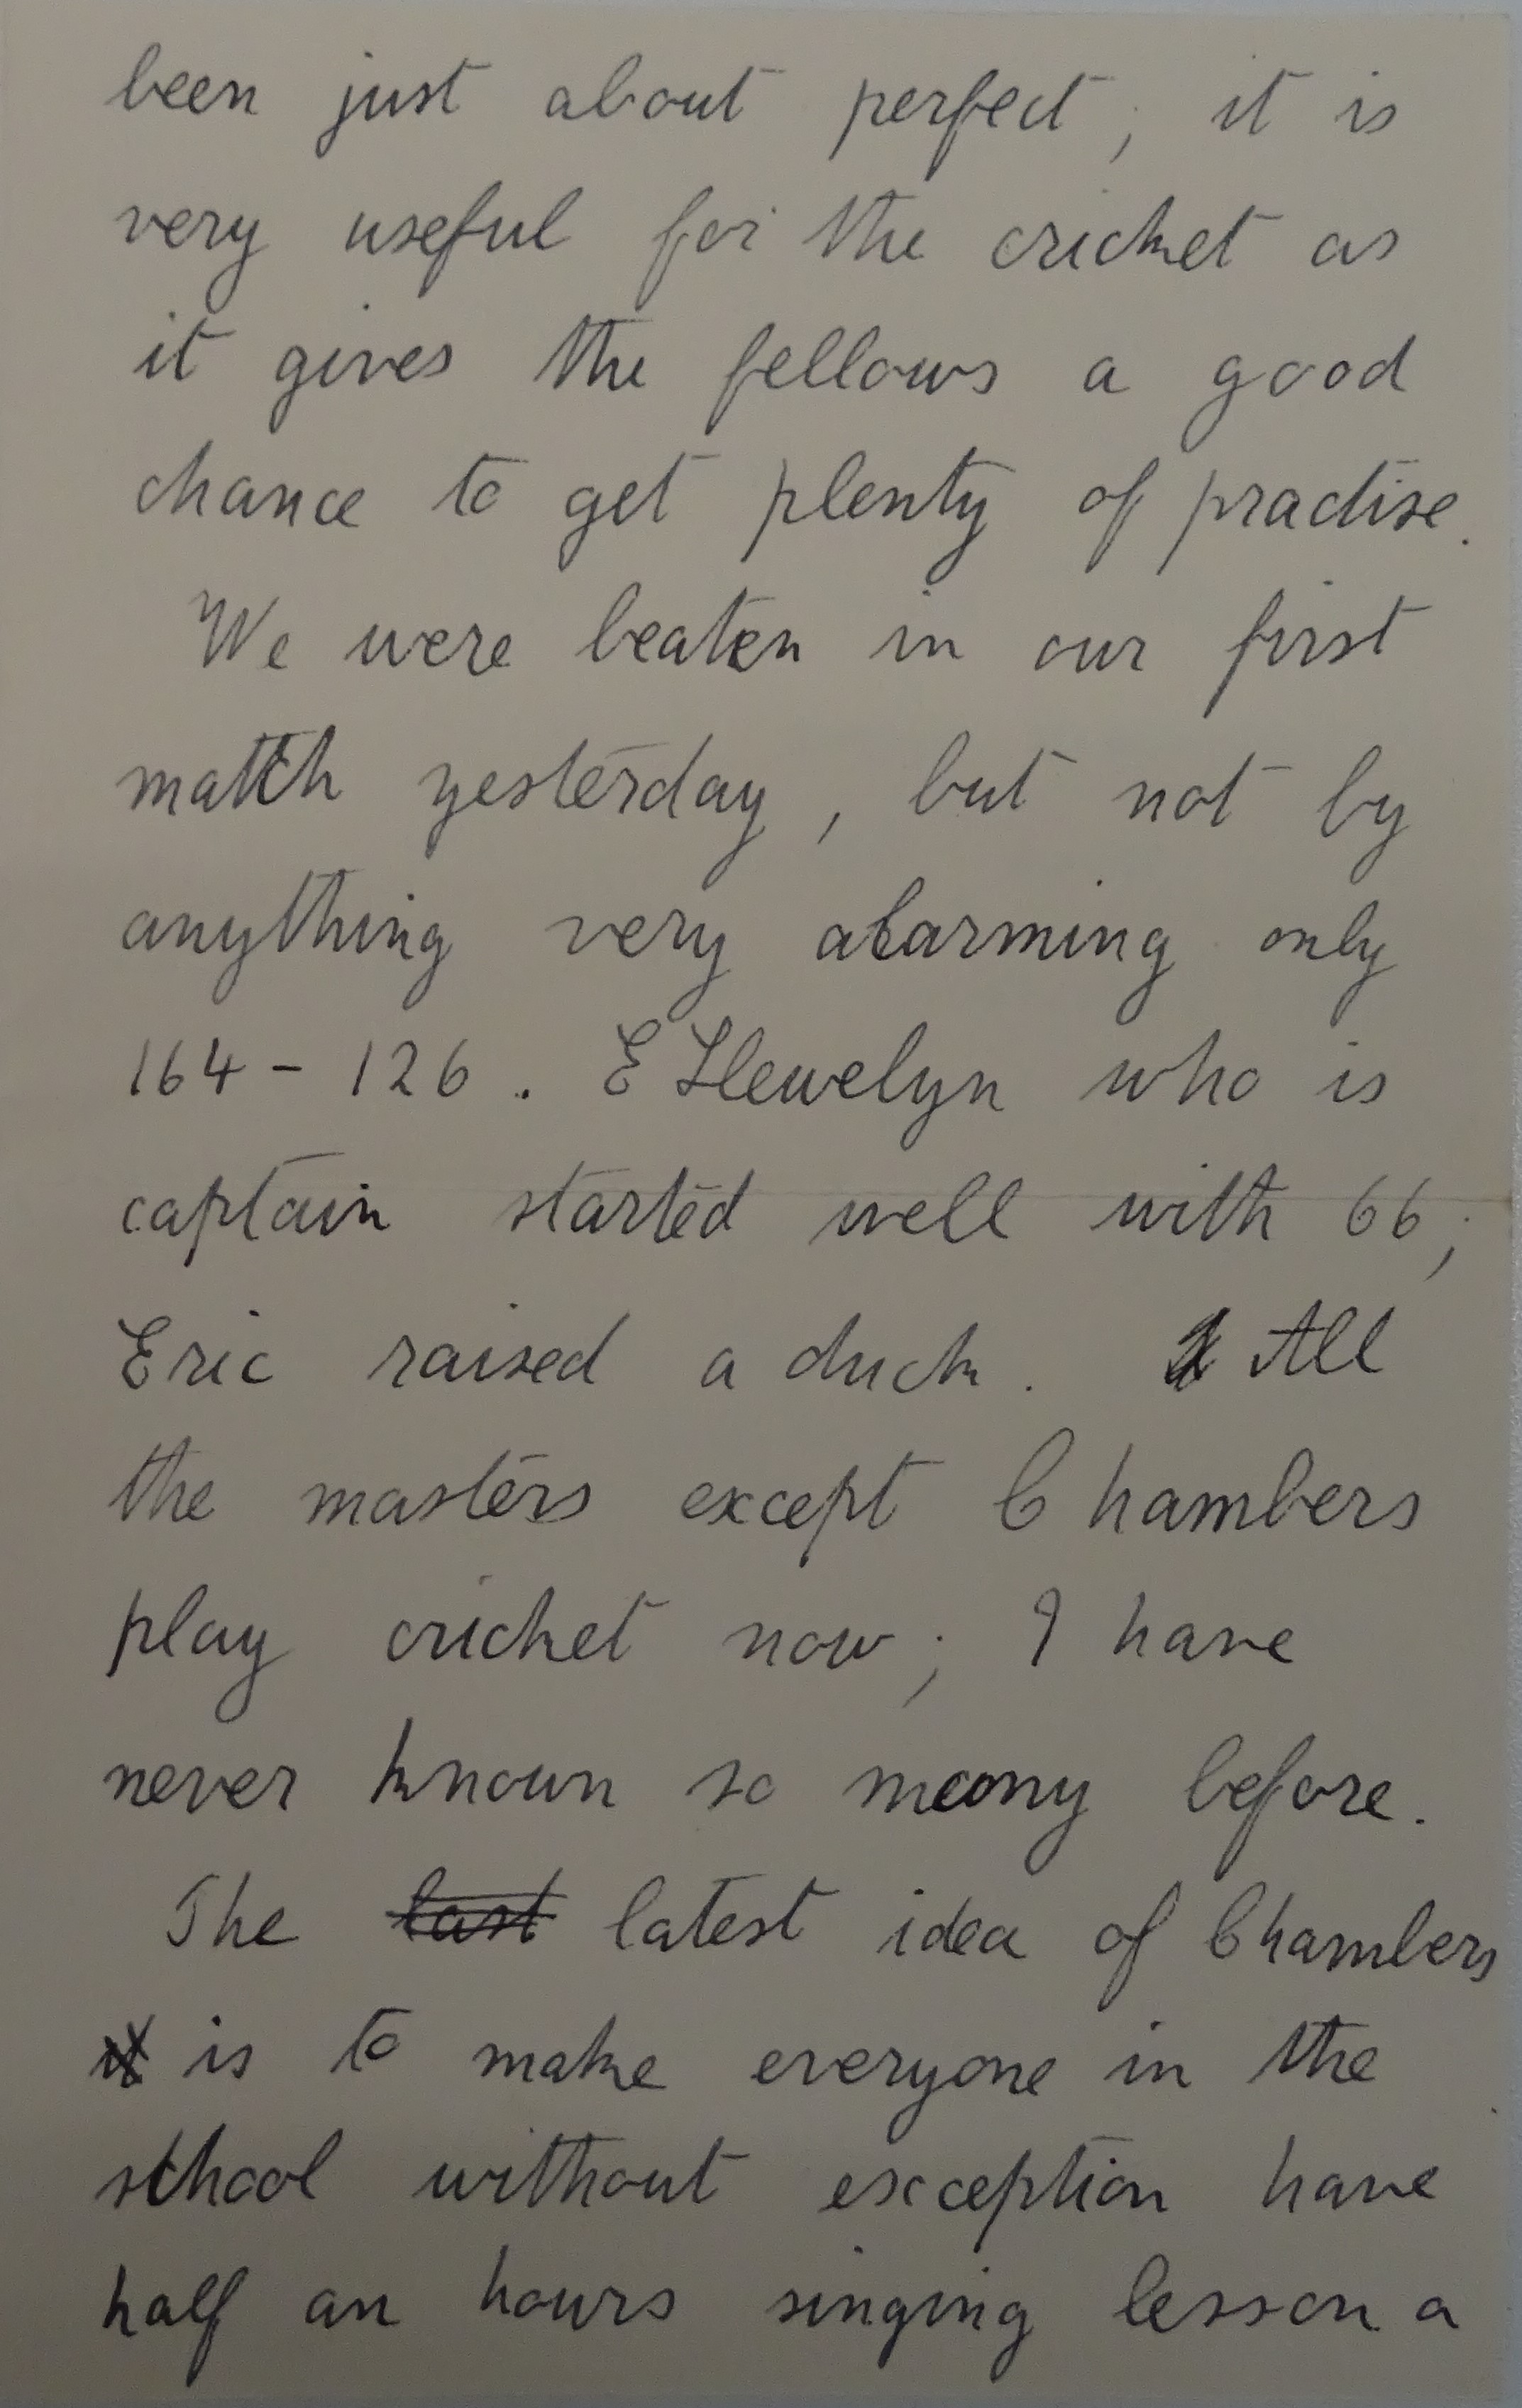 been just about perfect; it is
very useful for the cricket as
it gives the fellows a good
chance to get plenty of practise.
We were beaten in our first
match yesterday, but not by
anything very alarming only
164 - 126. E Llewelyn who is
captain started well with 66;
Eric raised a duck. All
the masters except Chambers
play cricket now; I have
never known so many before.
The last latest idea of Chambers
it is to make everyone in the
school without exception have
half an hours singing lesson a